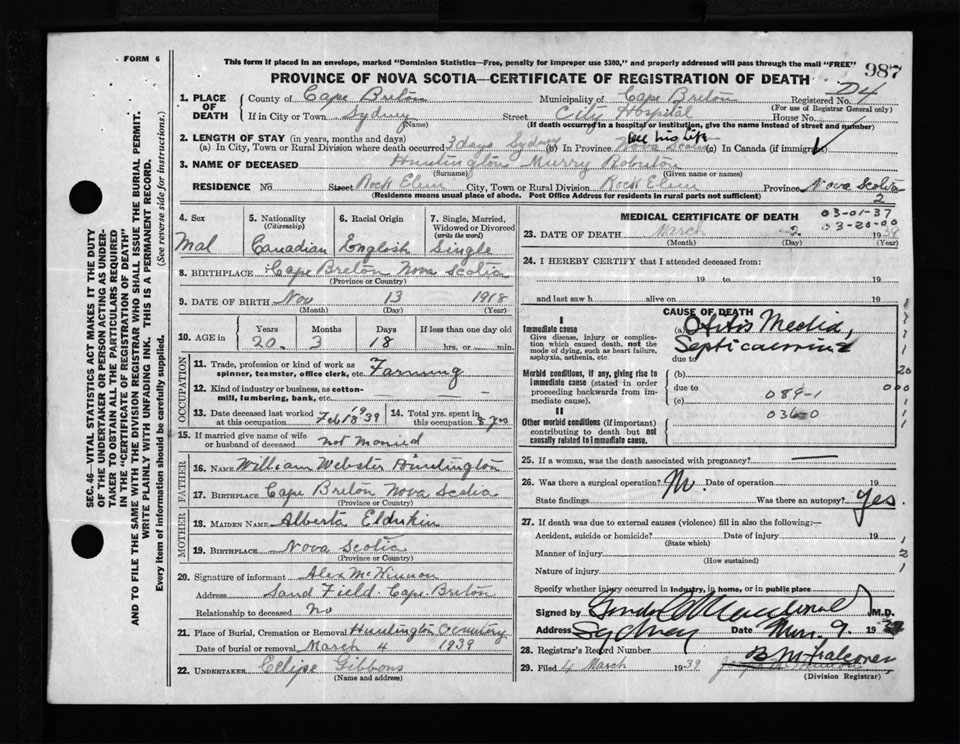 FORM 6
This form if placed in an envelope, marked "Dominion Statistics—Free, penalty for improper use $300," and properly addressed will pass through the mail "FREE"
987
PROVINCE OF NOVA SCOTIA—CERTIFICATE OF REGISTRATION OF DEATH
D4
1. PLACE OF DEATH
County of Cape Breton Municipality of Cape Breton Registered No.
(For use of Registrar General only)
If in City or Town Sydney Street City Hospital House No.
(Name) (If death occurred in a hospital or institution, give the name instead of street and number)
2. LENGTH OF STAY (in years, months and days) All his life
(a) In City, Town or Rural Division where death occurred 3 days Sydney (b) In Province Nova Scotia (c) In Canada (if immigrant)
3. NAME OF DECEASED Huntington Murry
(Surname) (Given name or names)
RESIDENCE No Street Rock Elem City, Town or Rural Division Rock Elem Province Nova Scotia
(Residence means usual place of abode. Post Office Address for residents in rural parts not sufficient)
2
4. Sex
Mal
5. Nationality
(Citizenship)
Canadian
6. Racial Origin
English
7. Single, Married, Widowed or Divorced
(write the word)
Single
8. BIRTHPLACE Cape Breton Nova Scotia
(Province or Country)
9. DATE OF BIRTH Nov 13 1918
(Month) (Day) (Year)
10. AGE in
Years Months Days If less than one day old
20 3 18 hrs. or min.
OCCUPATION
11. Trade, profession or kind of work as spinner, teamster, office clerk, etc. Farming
12. Kind of industry or business, as cotton-mill, lumbering, bank, etc.
13. Date deceased last worked at this occupation Feb 18 1939
14. Total yrs. spent in this occupation 8 yrs
15. If married give name of wife or husband of deceased not Married
FATHER
16. NAME William Webster Huntington
17. BIRTHPLACE Cape Breton Nova Scotia
MOTHER
18. MAIDEN NAME Alberta
19. BIRTHPLACE Nova Scotia
(Province or Country)
20. Signature of informant Alex McKinnon
Address Sand Field Cape Breton
Relationship to deceased no
21. Place of Burial, Cremation or Removal Huntington Cemetery
Date of burial or removal March 4 1939
22. UNDERTAKER Gibbons
(Name and address)
MEDICAL CERTIFICATE OF DEATH
03-01-37
03-20-00
23. DATE OF DEATH March 2 1939
(Month) (Day) (Year)
24. I HEREBY CERTIFY that I attended deceased from:
19 to 19
and last saw h alive on 19
CAUSE OF DEATH
I
Immediate cause
Give disease, injury or complication which caused death, not the mode of dying, such as heart failure, asphyxia, asthenia, etc.
(a) Otitis Media,
Septicaemia
due to
Morbid conditions, if any, giving rise to immediate cause (stated in order proceeding backwards from immediate cause).
(b)
due to
(c)
089-1
036-0
II
Other morbid conditions (if important) contributing to death but not causally related to immediate cause.
25. If a woman, was the death associated with pregnancy?
26. Was there a surgical operation? Date of operation 19
State findings Was there an autopsy? Yes.
27. If death was due to external causes (violence) fill in also the following:—
Accident, suicide or homicide? Date of injury 19
(State which)
Manner of injury
(How sustained)
Nature of injury
Specify whether injury occurred in industry, in home, or in public place
Signed by M.D.
Address Sydney Date Mar. 9. 19
28. Registrar's Record Number
B M Falconer
29. Filed 4 March 1939
(Division Registrar)
SEC. 46—VITAL STATISTICS ACT MAKES IT THE DUTY
OF THE UNDERTAKER OR PERSON ACTING AS UNDER-
TAKER TO OBTAIN ALL THE PARTICULARS REQUIRED
IN THE "CERTIFICATE OF REGISTRATION OF DEATH"
AND TO FILE THE SAME WITH THE DIVISION REGISTRAR WHO SHALL ISSUE THE BURIAL PERMIT.
WRITE PLAINLY WITH UNFADING INK. THIS IS A PERMANENT RECORD.
Every item of information should be carefully supplied. (See reverse side for instructions.)